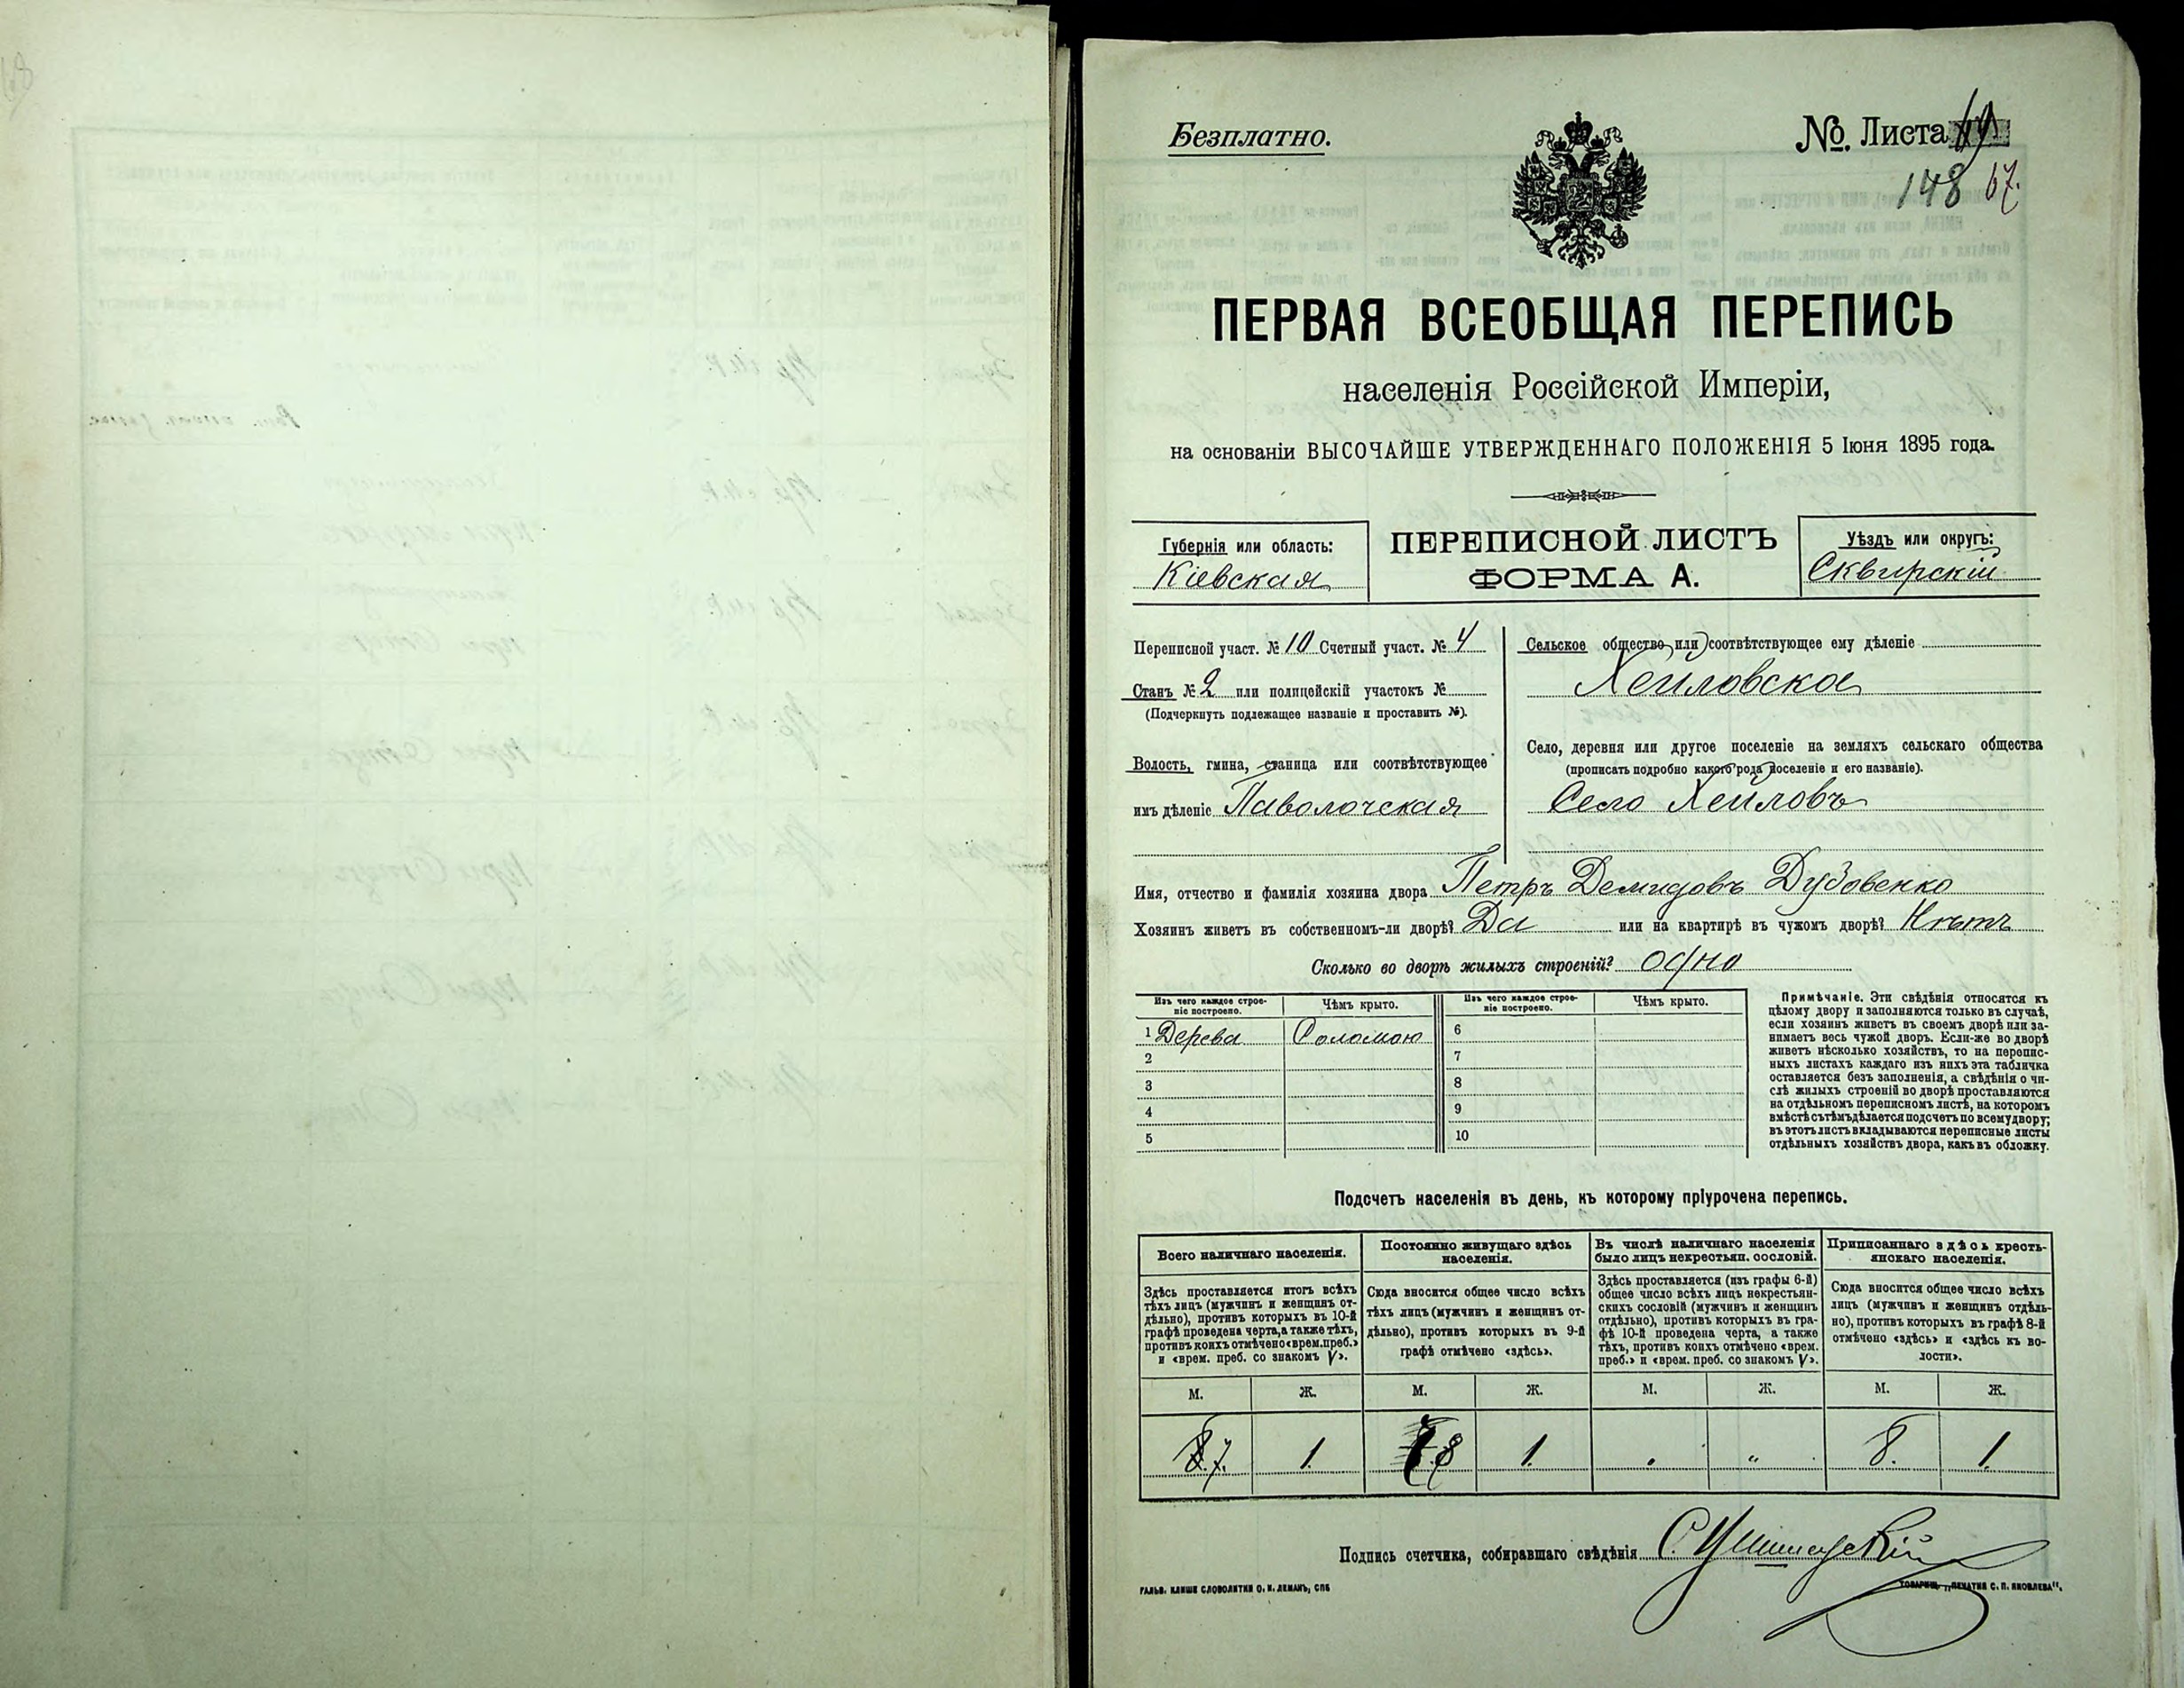 Безплатно.
№. Листа
148 67.
ПЕРВАЯ ВСЕОБЩАЯ ПЕРЕПИСЬ
населенія Россійской Имперіи,
на основаніи ВЫСОЧАЙШЕ УТВЕРЖДЕННАГО ПОЛОЖЕНІЯ 5 Іюня 1895 года.
Губернія или область:
Кіевская
ПЕРЕПИСНОЙ ЛИСТЪ
ФОРМА А.
Уѣздъ или округъ:
Сквирскій
Переписной участ. № 10 Счетный участ. № 4
Станъ № 2 или полицейскій участокъ №
(Подчеркнуть подлежащее названіе и проставить №).
Волость, гмина, станица или соотвѣтствующее
имъ дѣленіе Паволочская
Сельское общество (или) соотвѣтствующее ему дѣленіе
Хейловское
Село, деревня или другое поселеніе на земляхъ сельскаго общества
(прописать подробно какого рода поселеніе и его названіе).
Село Хейловъ
Имя, отчество и фамилія хозяина двора Петръ Демидовъ Дубовенко
Хозяинъ живетъ въ собственномъ-ли дворѣ? Да или на квартирѣ въ чужомъ дворѣ? Нѣтъ
Сколько во дворѣ жилыхъ строеній? одно
Изъ чего каждое строе-
ніе построено.
Чѣмъ крыто.
Изъ чего каждое строе-
ніе построено.
Чѣмъ крыто.
1 Дерева Соломою 6
2 7
3 8
4 9
5 10
Примѣчаніе. Эти свѣдѣнія относятся къ
цѣлому двору и заполняются только въ случаѣ,
если хозяинъ живетъ въ своемъ дворѣ или за-
нимаетъ весь чужой дворъ. Если-же во дворѣ
живетъ нѣсколько хозяйствъ, то на перепис-
ныхъ листахъ каждаго изъ нихъ эта табличка
оставляется безъ заполненія, а свѣдѣнія о чи-
слѣ жилыхъ строеній во дворѣ проставляются
на отдѣльномъ переписномъ листѣ, на которомъ
вмѣстѣ съ тѣмъ дѣлается подсчетъ по всему двору;
въ этотъ листъ вкладываются переписные листы
отдѣльныхъ хозяйствъ двора, какъ въ обложку.
Подсчетъ населенія въ день, къ которому пріурочена перепись.
Всего наличнаго населенія.
Здѣсь проставляется итогъ всѣхъ
тѣхъ лицъ (мужчинъ и женщинъ от-
дѣльно), противъ которыхъ въ 10-й
графѣ проведена черта, а также тѣхъ,
противъ коихъ отмѣчено «врем. преб.»
и «врем. преб. со знакомъ V».
Постоянно живущаго здѣсь
населенія.
Сюда вносится общее число всѣхъ
тѣхъ лицъ (мужчинъ и женщинъ от-
дѣльно), противъ которыхъ въ 9-й
графѣ отмѣчено «здѣсь».
Въ числѣ наличнаго населенія
было лицъ некрестьян. сословій.
Здѣсь проставляется (изъ графы 6-й)
общее число всѣхъ лицъ некрестьян-
скихъ сословій (мужчинъ и женщинъ
отдѣльно), противъ которыхъ въ гра-
фѣ 10-й проведена черта, а также
тѣхъ, противъ коихъ отмѣчено «врем.
преб.» и «врем. преб. со знакомъ V».
Приписаннаго здѣсь кресть-
янскаго населенія.
Сюда вносится общее число всѣхъ
лицъ (мужчинъ и женщинъ отдѣль-
но), противъ которыхъ въ графѣ 8-й
отмѣчено «здѣсь» и «здѣсь къ во-
лости».
М. Ж. М. Ж. М. Ж. М. Ж.
7. 1. 8 1. . „ 8. 1.
Подпись счетчика, собиравшаго свѣдѣнія
ГАЛЬВ. КЛИШЕ СЛОВОЛИТНИ О. И. ЛЕМАНЪ, СПБ
ТОВАРИЩ. „ПЕЧАТНЯ С. П. ЯКОВЛЕВА".